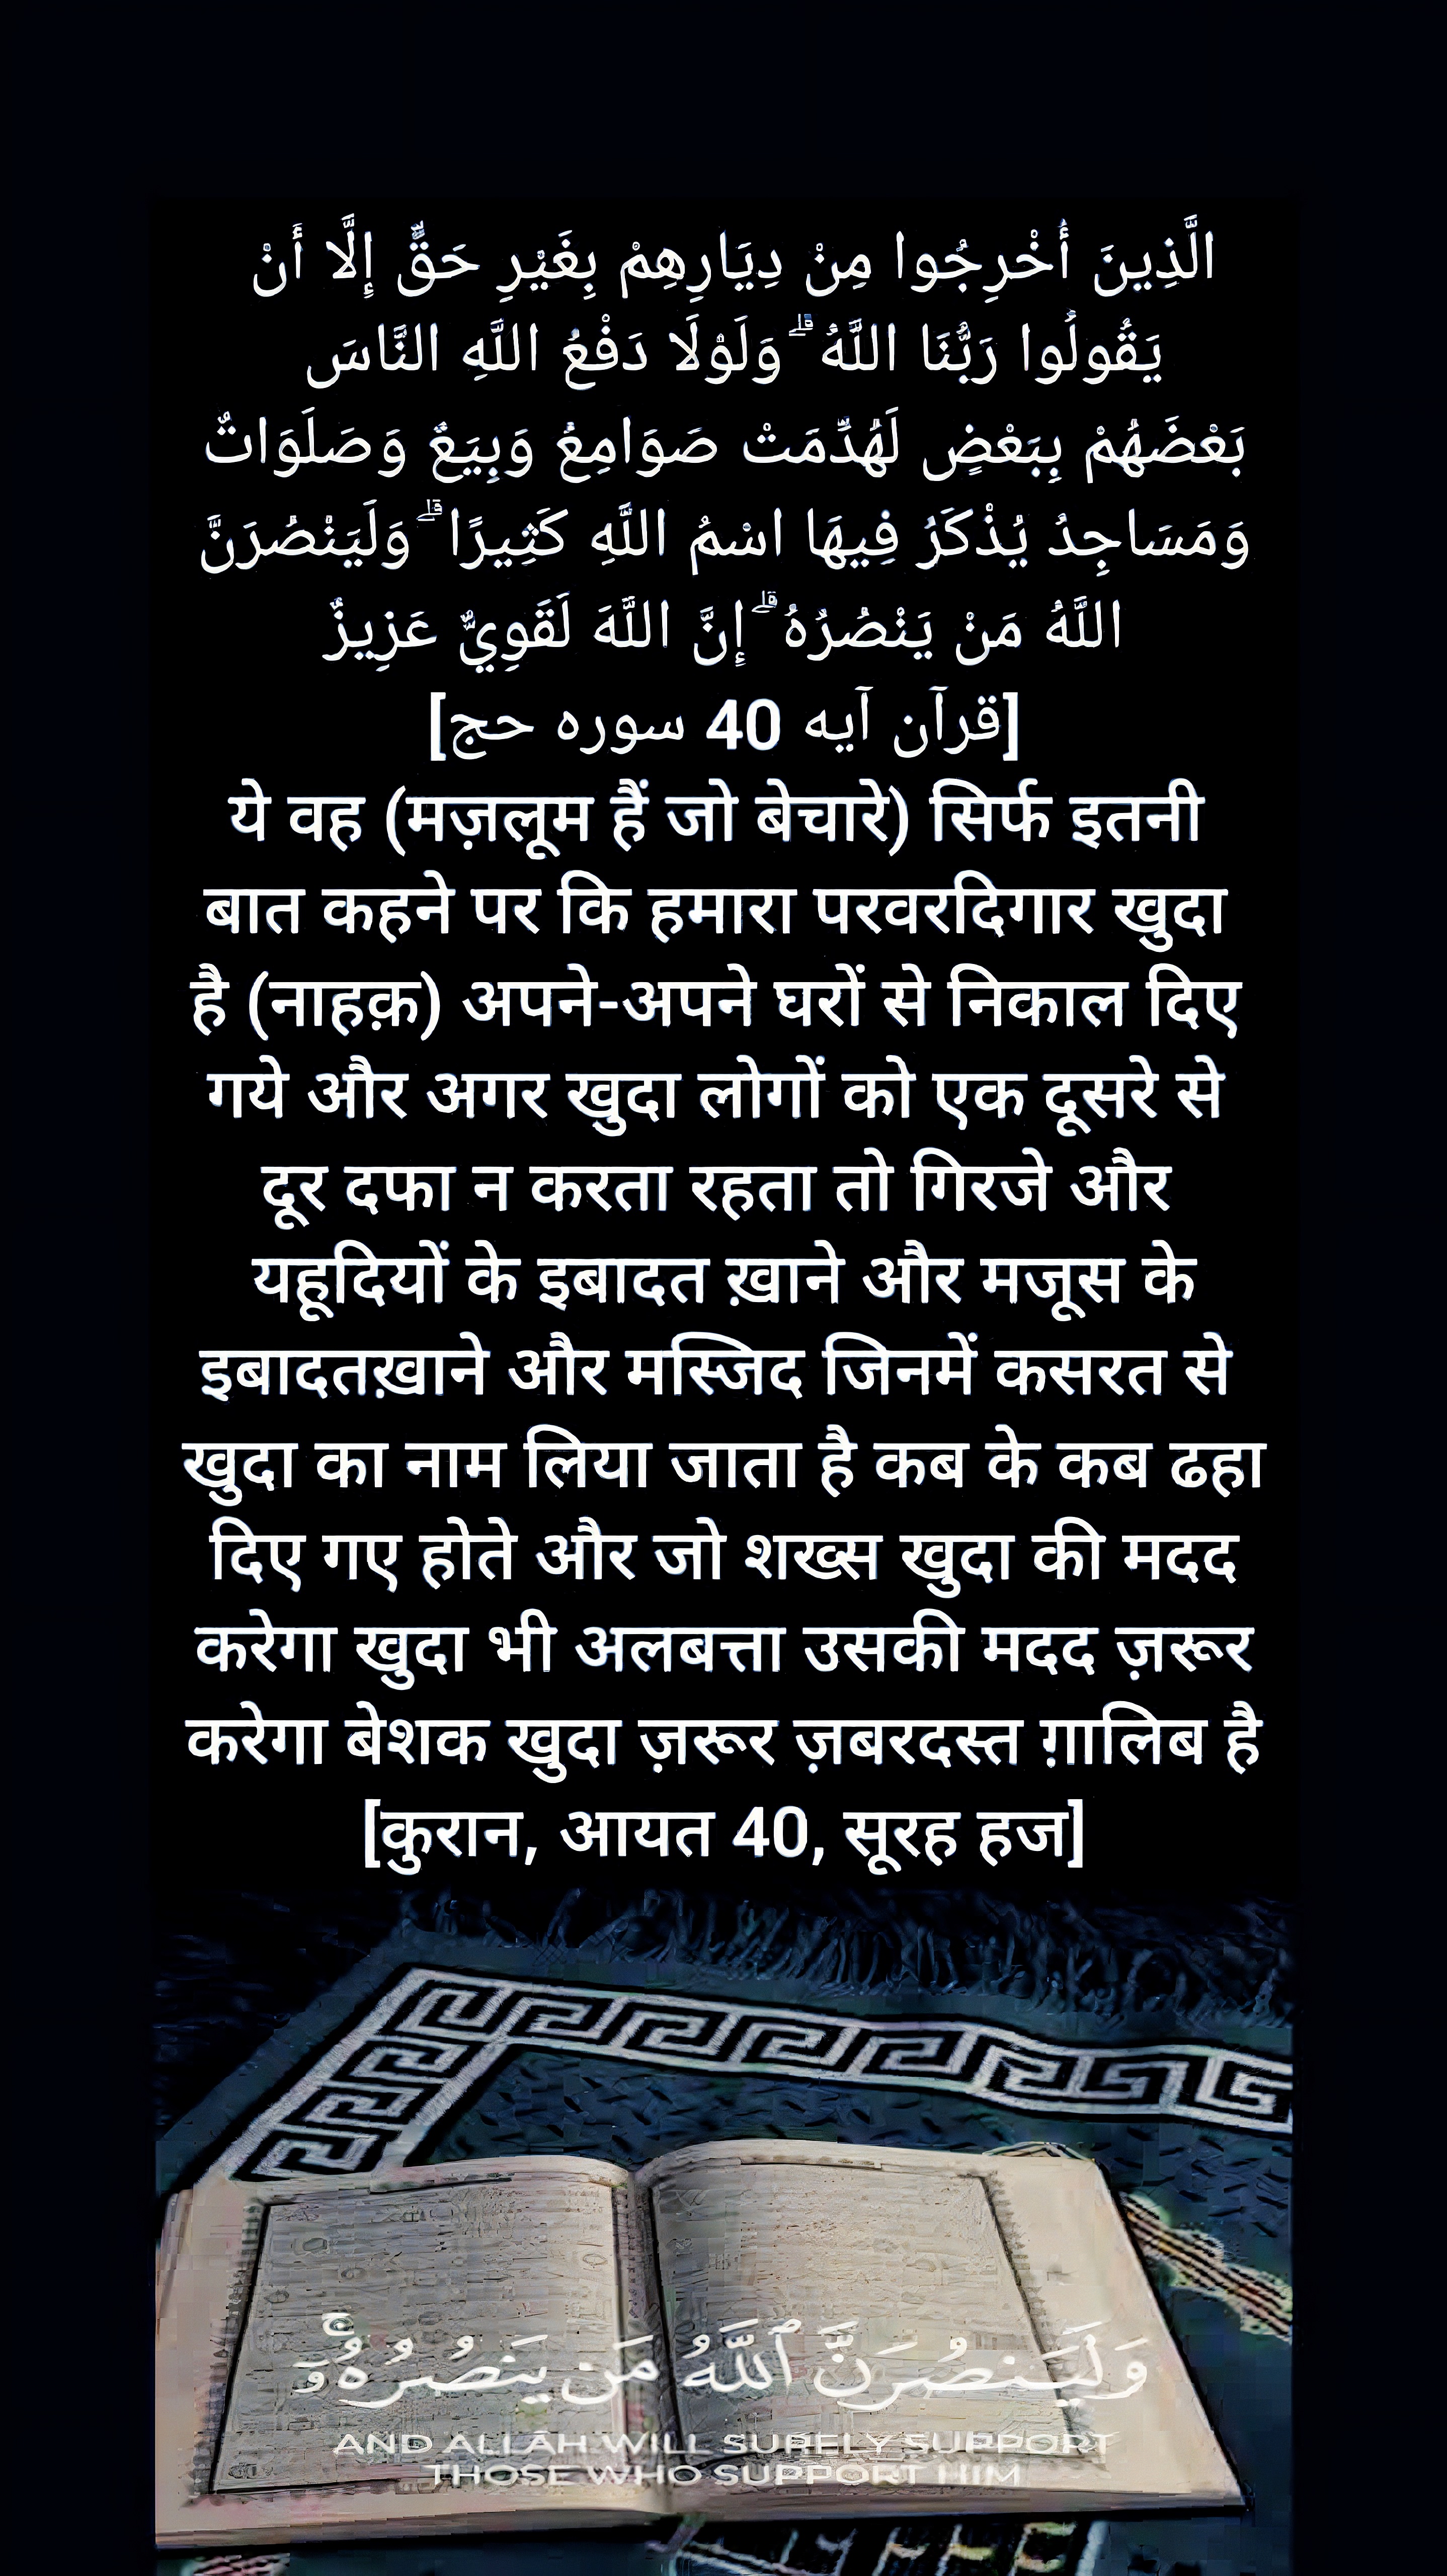 الَّذِينَ أُخْرِجُوا مِنْ دِيَارِهِمْ بِغَيْرِ حَقٍّ إِلَّا أَنْ
يَقُولُوا رَبُّنَا اللَّهُ ۗ وَلَوْلَا دَفْعُ اللَّهِ النَّاسَ
بَعْضَهُمْ بِبَعْضٍ لَهُدِّمَتْ صَوَامِعُ وَبِيَعٌ وَصَلَوَاتٌ
وَمَسَاجِدُ يُذْكَرُ فِيهَا اسْمُ اللَّهِ كَثِيرًا ۗ وَلَيَنْصُرَنَّ
اللَّهُ مَنْ يَنْصُرُهُ ۗ إِنَّ اللَّهَ لَقَوِيٌّ عَزِيزٌ
[قرآن آیه 40 سوره حج]
ये वह (मज़लूम हैं जो बेचारे) सिर्फ इतनी
बात कहने पर कि हमारा परवरदिगार खुदा
है (नाहक़) अपने-अपने घरों से निकाल दिए
गये और अगर खुदा लोगों को एक दूसरे से
दूर दफा न करता रहता तो गिरजे और
यहूदियों के इबादत ख़ाने और मजूस के
इबादतख़ाने और मस्जिद जिनमें कसरत से
खुदा का नाम लिया जाता है कब के कब ढहा
दिए गए होते और जो शख्स खुदा की मदद
करेगा खुदा भी अलबत्ता उसकी मदद ज़रूर
करेगा बेशक खुदा ज़रूर ज़बरदस्त ग़ालिब है
[कुरान, आयत 40, सूरह हज]
وَلَيَنصُرَنَّ ٱللَّهُ مَن يَنصُرُهُۥٓ ۚ
AND ALLAH WILL SURELY SUPPORT
THOSE WHO SUPPORT HIM